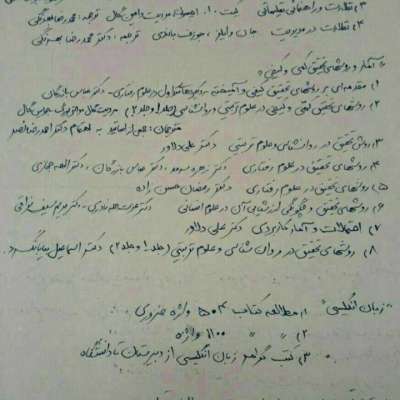 ۳) نظارت و راهنمائی تعلیماتی
۴) نظارت در مدیریت جان وایلز، جوزف باندی ترجمه: دکتر محمدرضا بهرنگی
"آمار و روشهای تحقیق کمی و کیفی"
۱) مقدمه‌ای بر روشهای تحقیق کیفی و آمیخته رویکردهای متداول در علوم رفتاری - دکتر عباس بازرگان
۲) روشهای تحقیق کمی و کیفی در علوم تربیتی و روانشناسی (جلد ۱ و جلد ۲)
مترجمان: جمعی از اساتید به اهتمام دکتر احمدرضا نصر
۳) روش تحقیق در روانشناسی و علوم تربیتی دکتر علی دلاور
۴) روشهای تحقیق در علوم رفتاری دکتر زهره سرمد، دکتر عباس بازرگان، دکتر الهه حجازی
۵) روشهای تحقیق در علوم رفتاری دکتر رمضان حسن زاده
۶) روشهای تحقیق و چگونگی ارزشیابی آن در علوم انسانی دکتر عزت اله نادری - دکتر مریم سیف نراقی
۷) احتمالات و آمار کاربردی دکتر علی دلاور
۸) روشهای تحقیق در روان شناسی و علوم تربیتی (جلد ۱ و جلد ۲) دکتر اسماعیل بیابانگرد
"زبان انگلیسی" ۱) مطالعه کتاب ۵۰۴ واژه ضروری
۲) " " ۱۱۰۰ واژه
۳) کتب گرامر زبان انگلیسی از دبیرستان تا دانشگاه